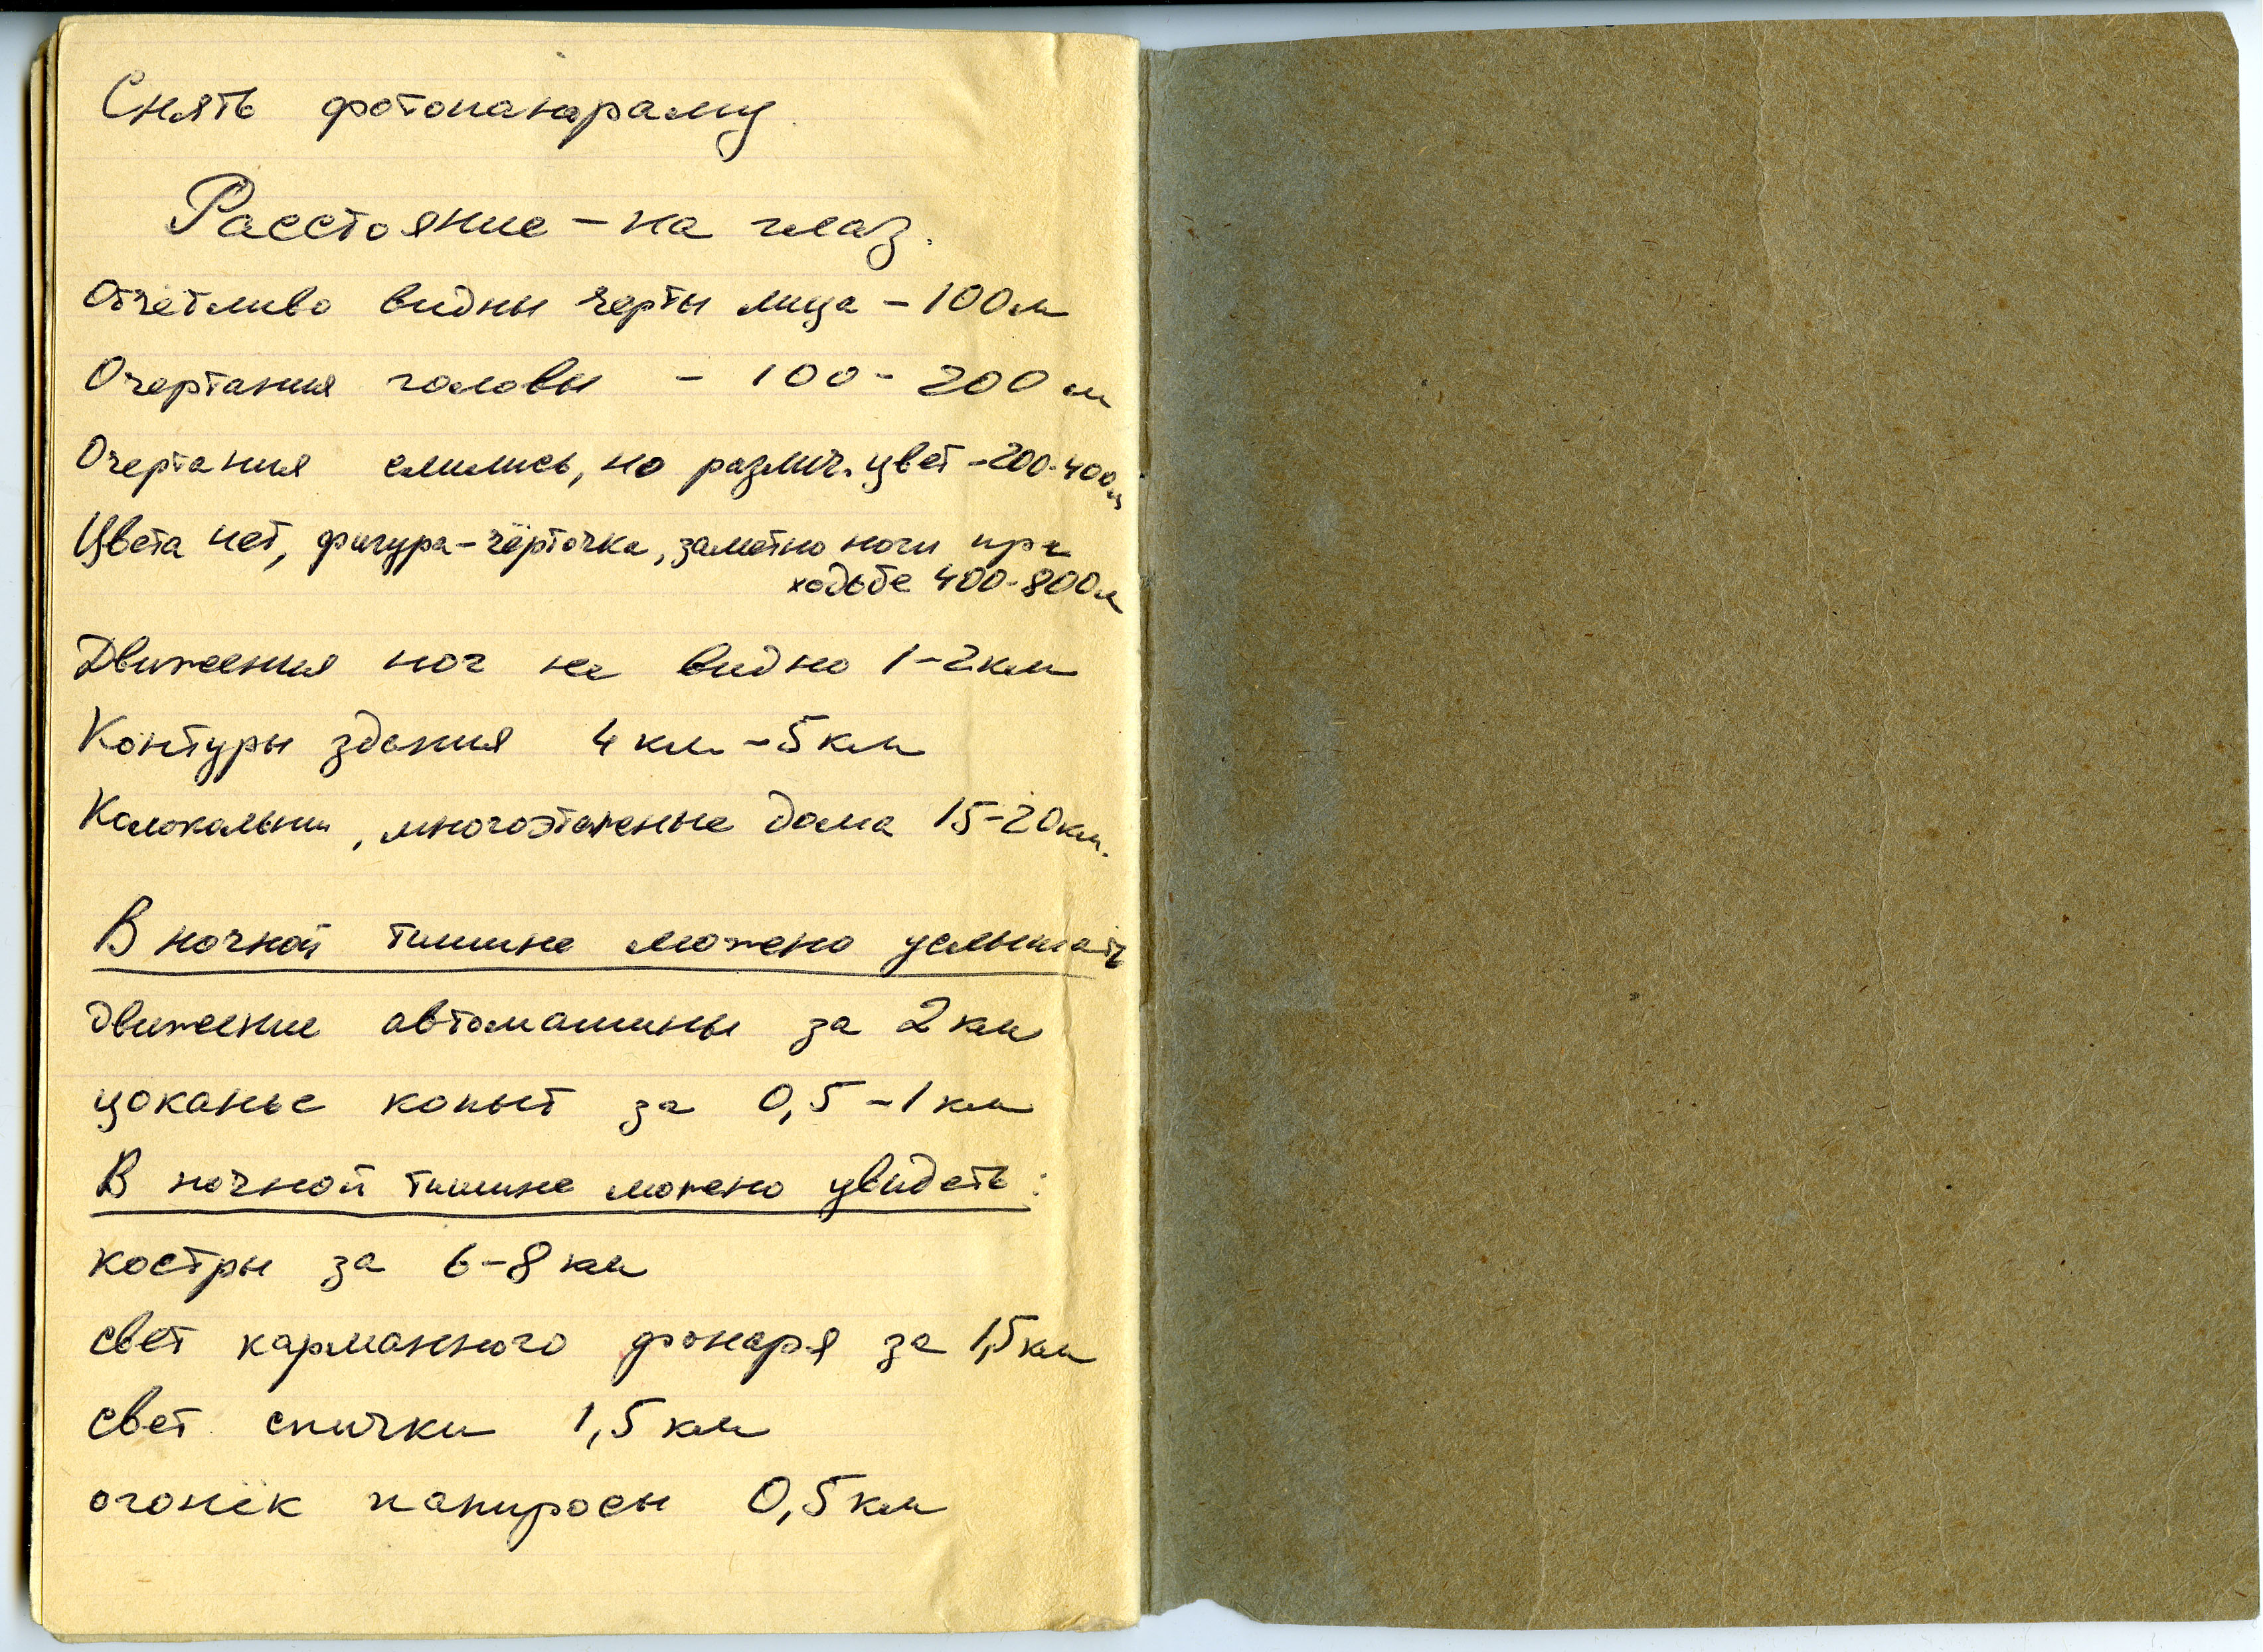 Снять фотопанораму.
Расстояние – на глаз.
Отчётливо видны черты лица – 100м
Очертания головы – 100 - 200 м
Очертания слились, но различ. цвет – 200-400м
Цвета нет, фигура – чёрточка, заметно ноги при
ходьбе 400-800м
Движения ног не видно 1-2км
Контуры здания 4 км – 5 км
Колокальни, многоэтажные дома 15-20км.
В ночной тишине можно услышать
движение автомашины за 2 км
цоканье копыт за 0,5 – 1 км
В ночной тишине можно увидеть:
костры за 6-8 км
свет карманного фонаря за 1,5 км
свет спички 1,5 км
огонёк папиросы 0,5 км